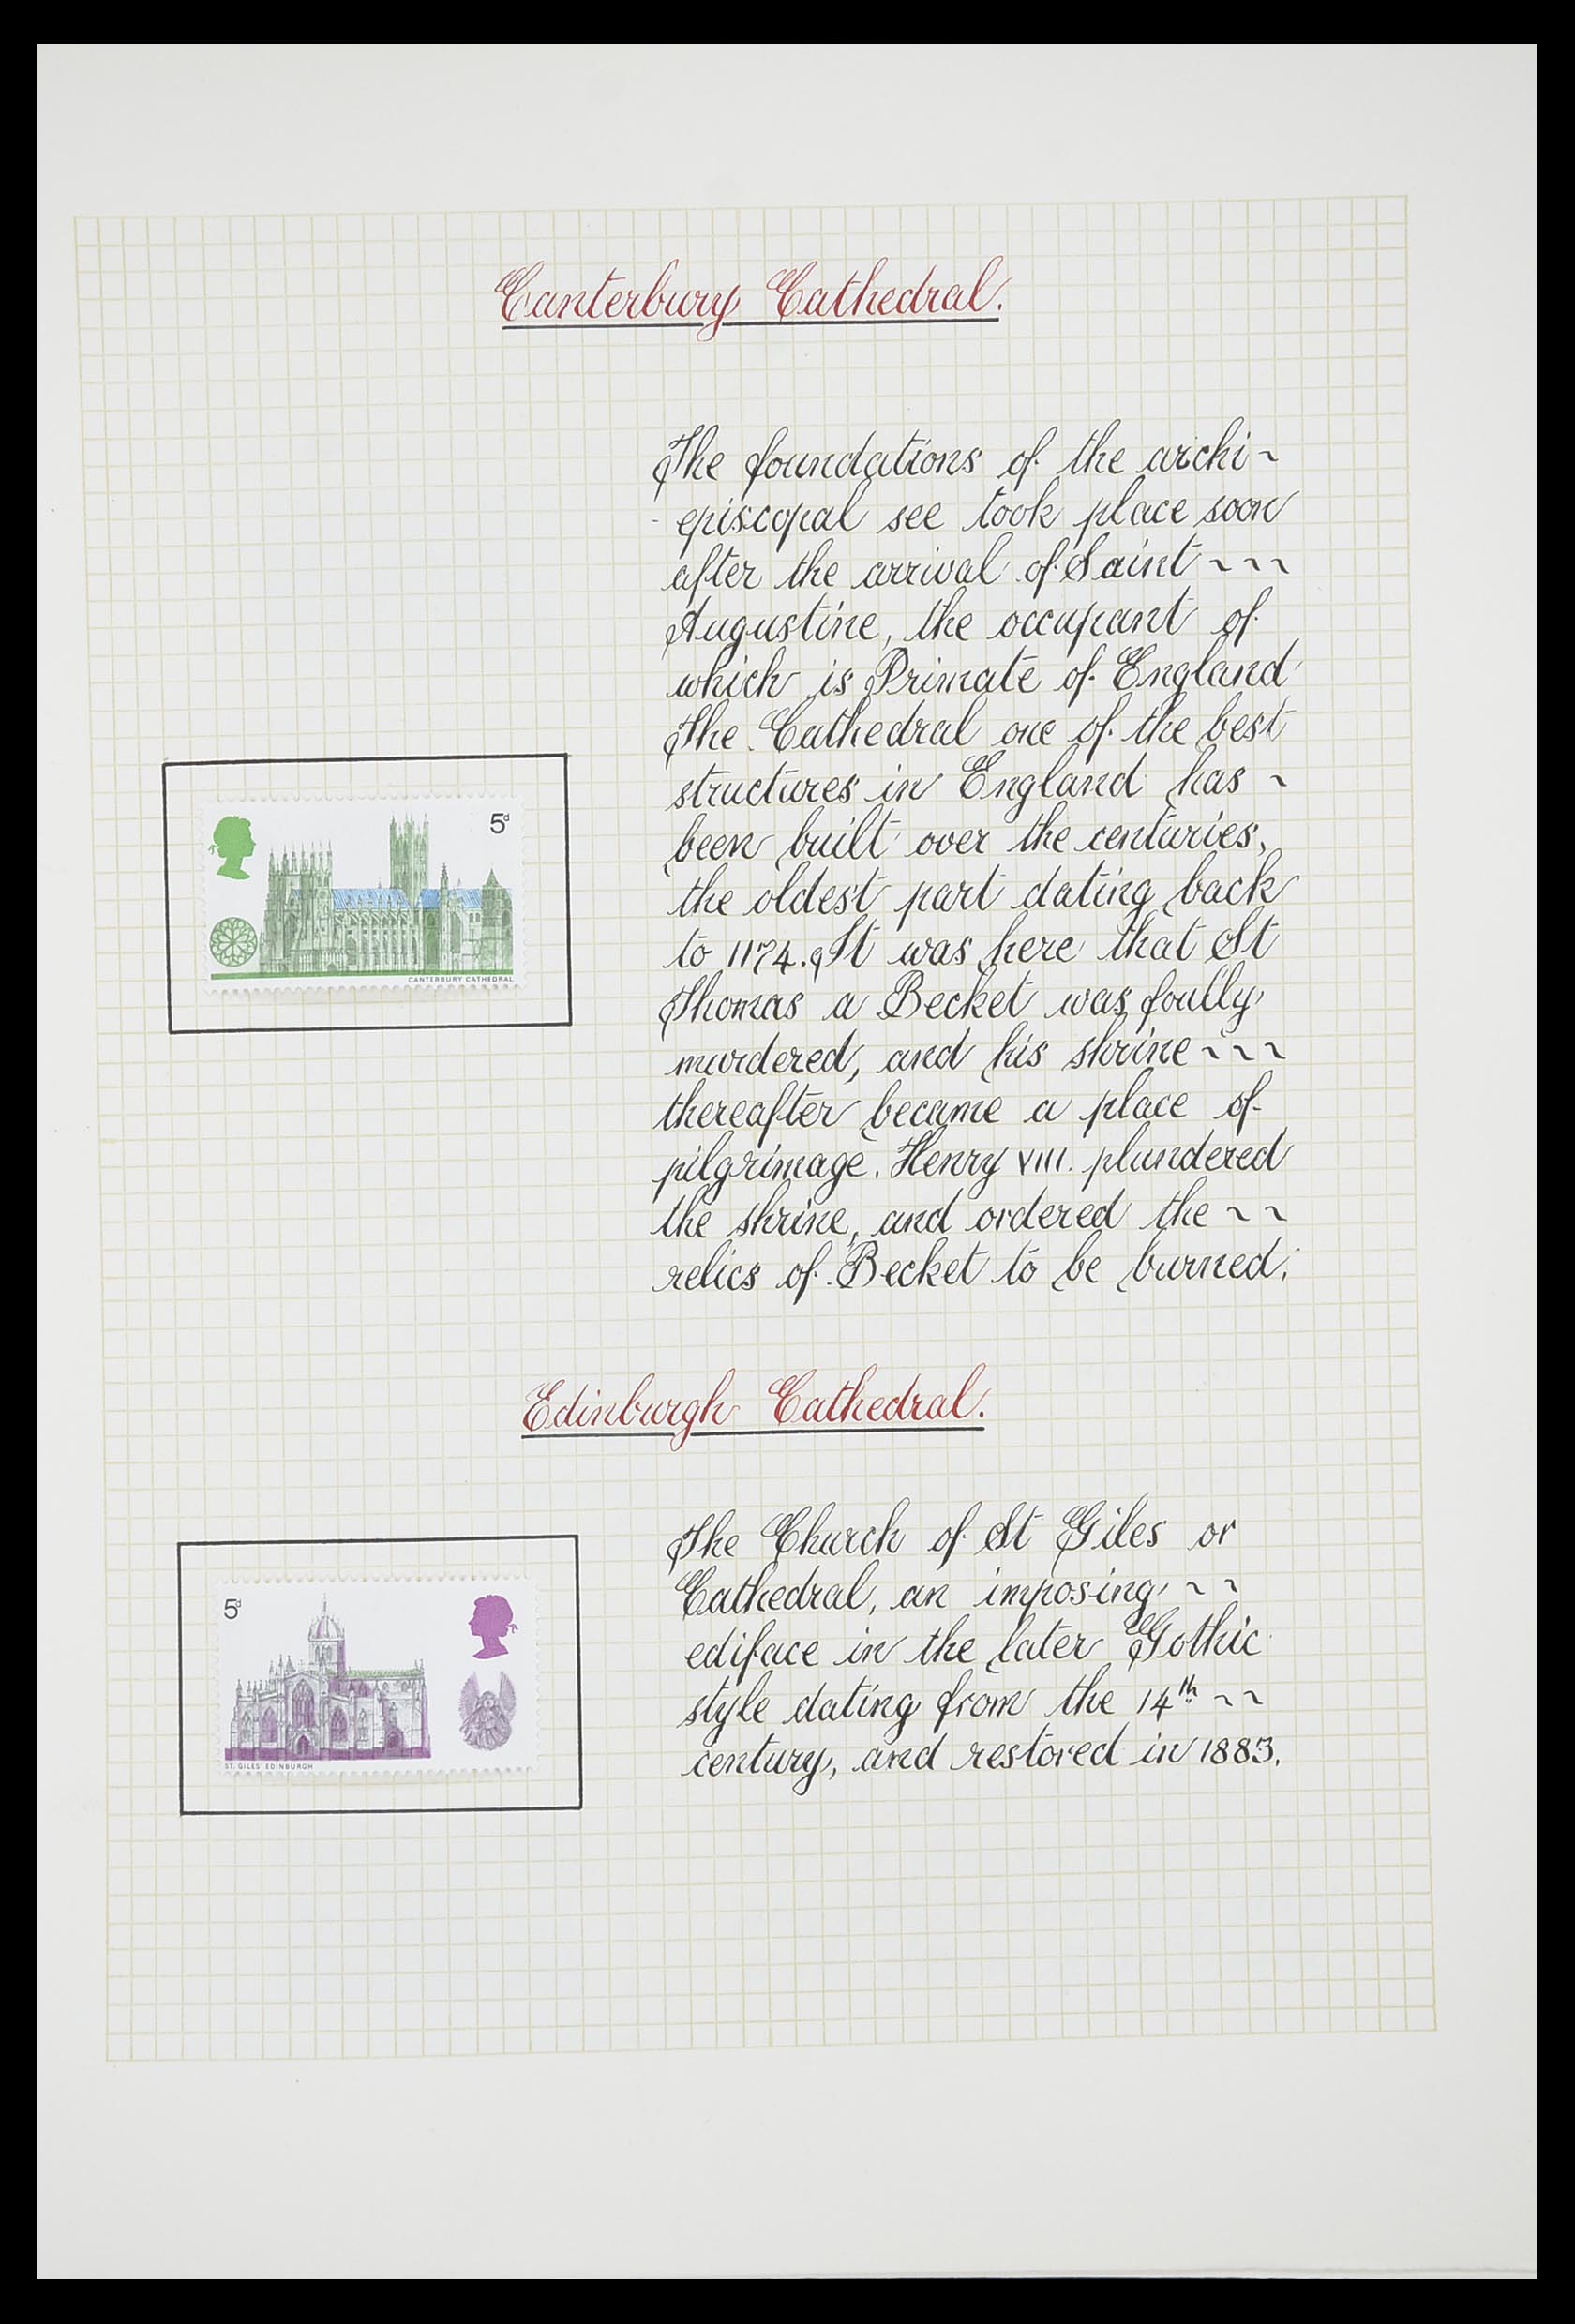 Canterbury Cathedral.
The foundations of the archi~
-episcopal see took place soon
after the arrival of Saint ~ ~ ~
Augustine, the occupant of
which is Primate of England
The Cathedral one of the best
structures in England has ~
been built over the centuries,
the oldest part dating back
to 1174. It was here that St
Thomas a Becket was foully
murdered, and his shrine ~ ~ ~
thereafter became a place of
pilgrimage. Henry VIII. plundered
the shrine, and ordered the ~ ~
relics of Becket to be burned.
5d
CANTERBURY CATHEDRAL
Edinburgh Cathedral.
The Church of St Giles or
Cathedral, an imposing ~ ~
ediface in the later Gothic
style dating from the 14th ~ ~
century, and restored in 1883.
5d
ST. GILES' EDINBURGH